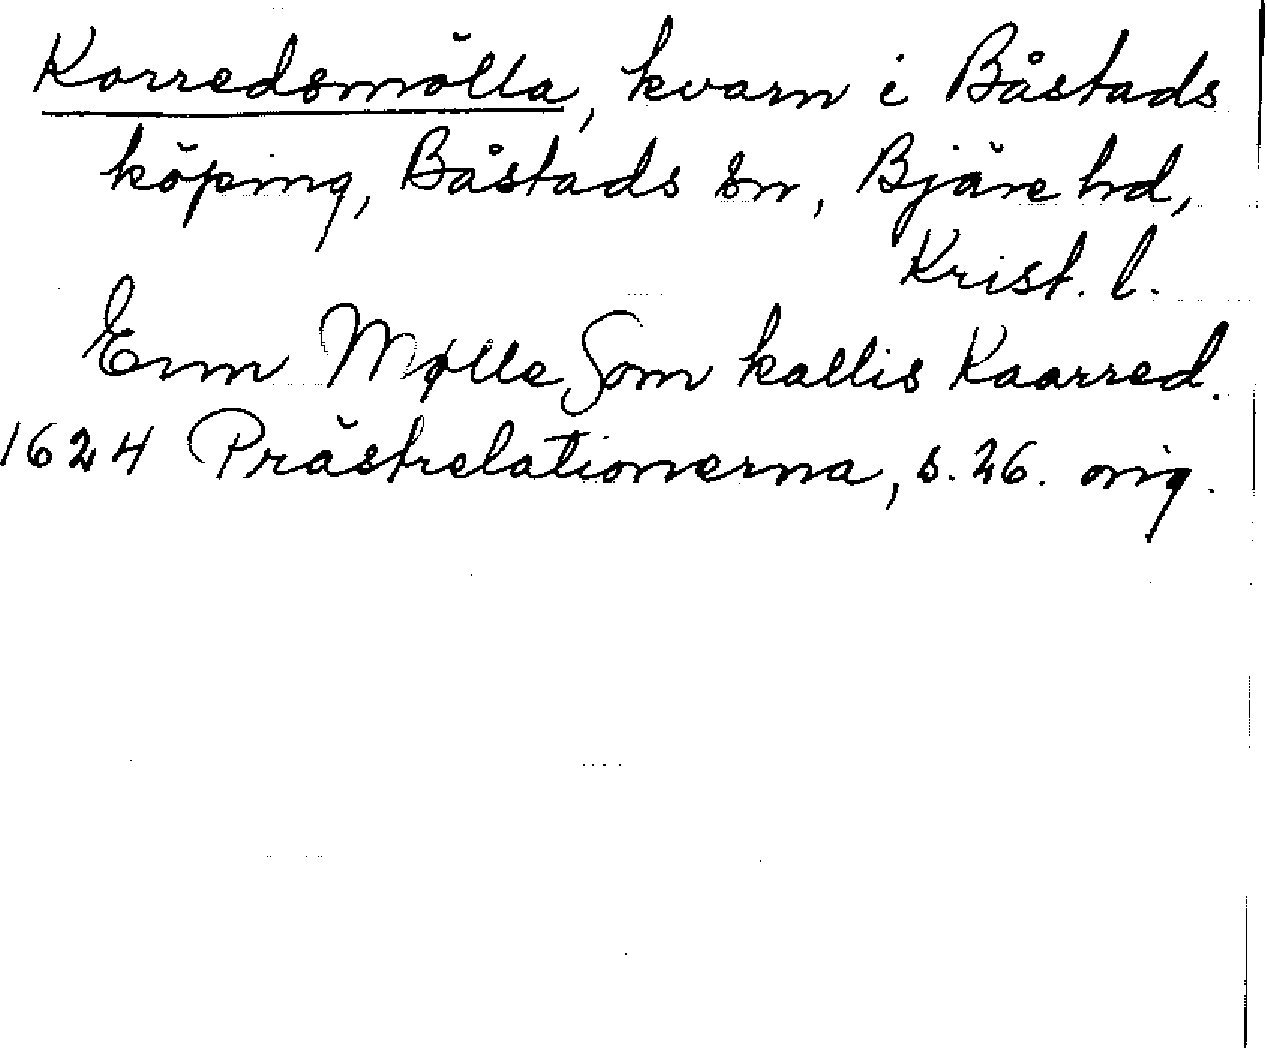 Korredsmölla, kvarn i Båstads
köping, Båstads sn, Bjäre hd,
Krist. l.
Enn Mølle Som kallis Kaarred.
1624 Prästrelationerna, s. 26. orig.